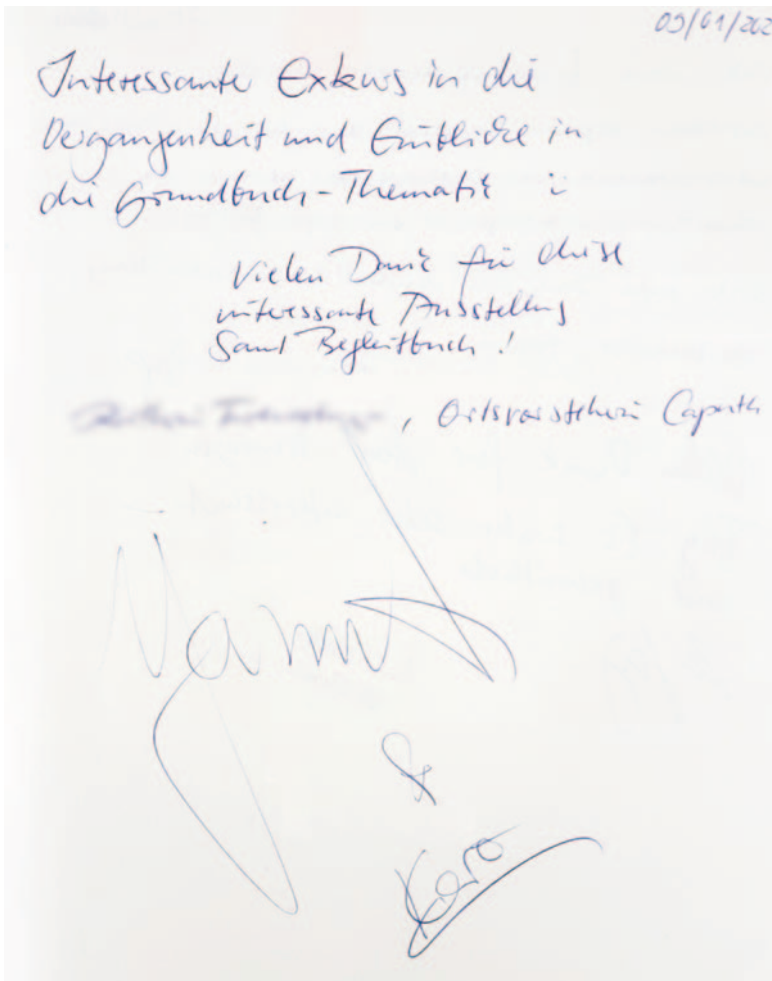 09/01/202
Interessanter Exkurs in die
Vergangenheit und Einblicke in
die Grundbuch-Thematik
Vielen Dank für diese
interessante Ausstellung
samt Begleitbuch!
, Ortsvorsteherin Caputh
&